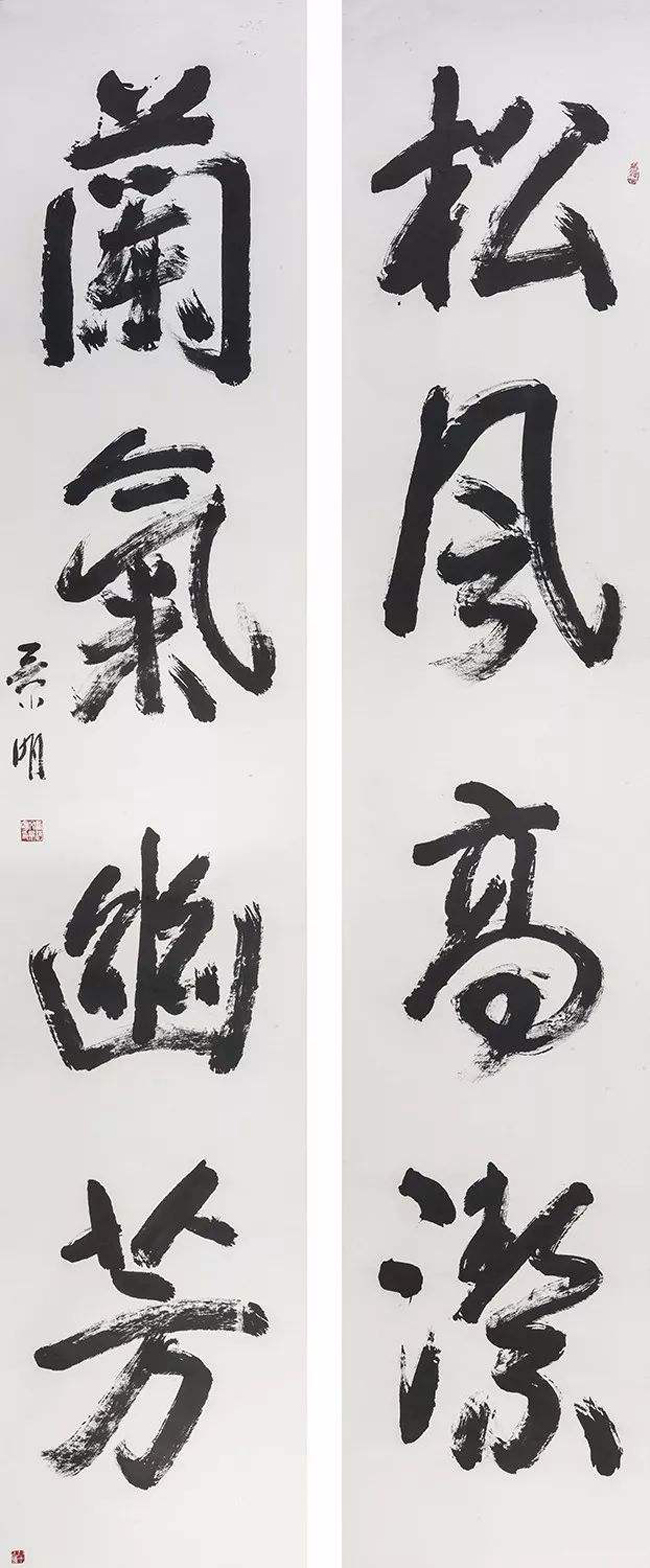 松风高潔
蘭氣幽芳
景明